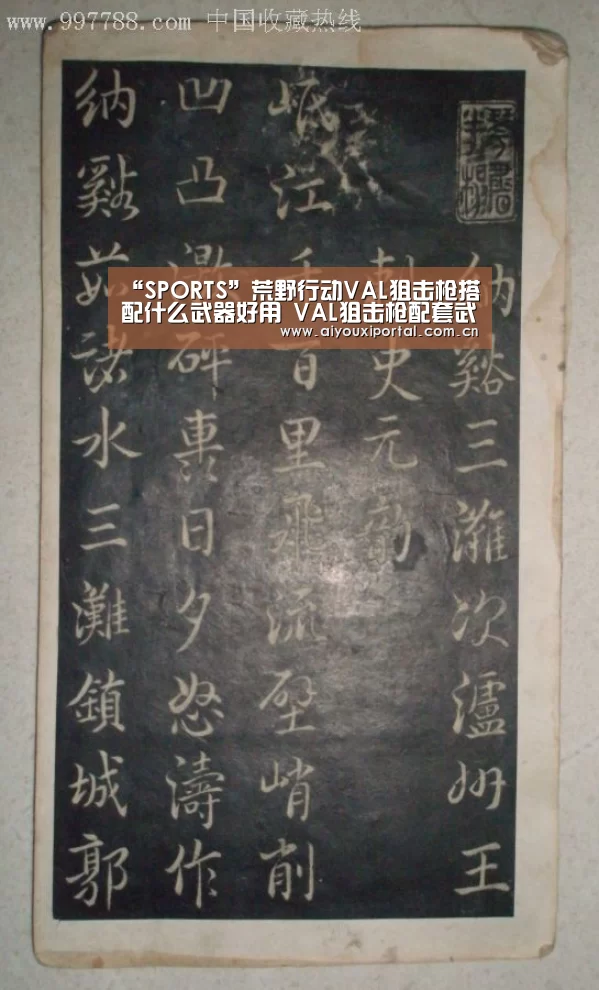 www.997788.com 中国收藏热线
“SPORTS”荒野行动VAL狙击枪搭
配什么武器好用 VAL狙击枪配套武
www.aiyouxiportal.com.cn
纳谿三滩次瀘州王
刺史元韵
岷江千百里飛流壁峭削
凹凸激砰轟日夕怒濤作
纳谿茹諸水三灘鎮城郭